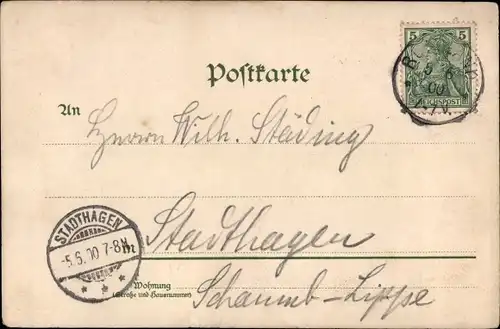 5 5
REICHSPOST
5 6
00
Postkarte
An
Herrn Wilh. Städing
Stadthagen
STADTHAGEN
-5.6.00 7-8N
in
Wohnung
(Straße und Hausnummer)
Schaumb-Lippe